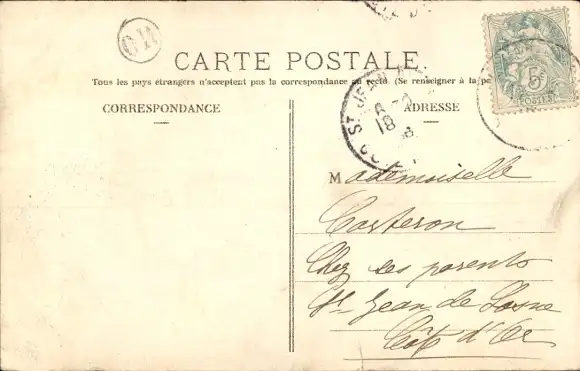 CARTE POSTALE
Tous les pays étrangers n'acceptent pas la correspondance au recto. (Se renseigner à la
CORRESPONDANCE
ADRESSE
ST JEAN
18
5
POSTES
Mademoiselle
Carteron
Chez ses parents
St Jean de Losne
Côte d'Or